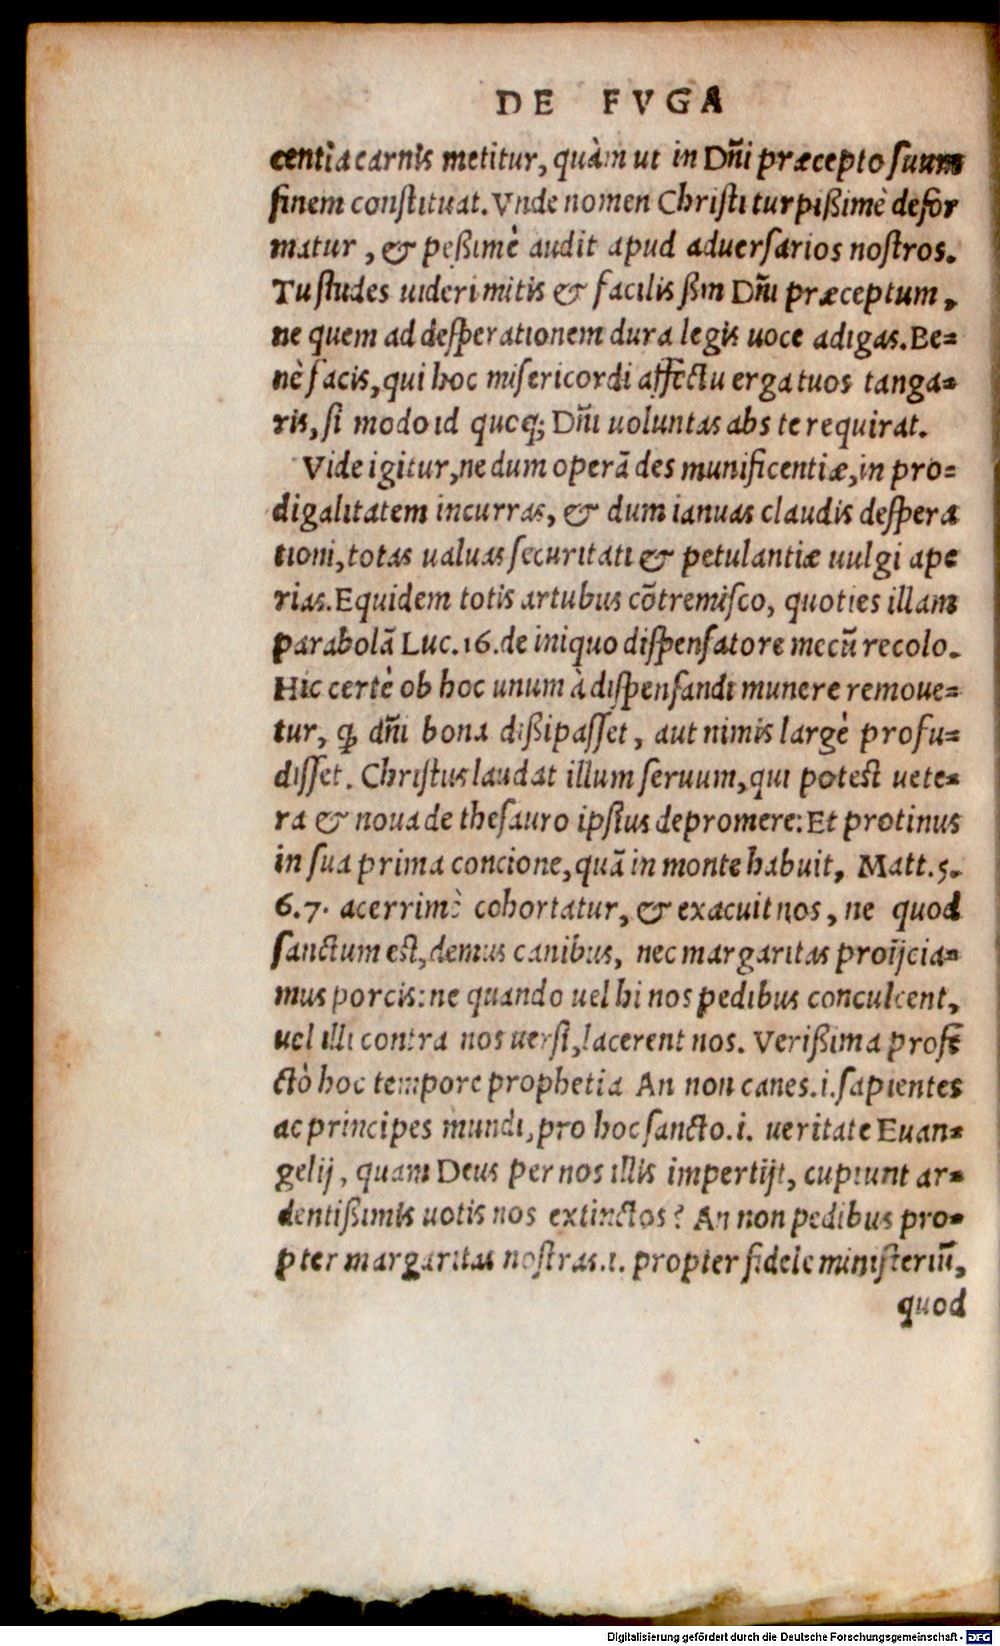 DE FVGA
centia carnis metitur, quàm ut in Dñi præcepto suum
finem constituat. Vnde nomen Christi turpißimè defor
matur, & peßimè audit apud aduersarios nostros.
Tu studes uideri mitis & facilis ßm Dñi præceptum,
ne quem ad desperationem dura legis uoce adigas. Be=
nè facis, qui hoc misericordi affectu erga tuos tanga=
ris, si modo id quoq; Dñi uoluntas abs te requirat.
Vide igitur, ne dum operã des munificentiæ, in pro=
digalitatem incurras, & dum ianuas claudis despera
tioni, totas ualuas securitati & petulantiæ uulgi ape
rias. Equidem totis artubus cõtremisco, quoties illam
parabolã Luc. 16. de iniquo dispensatore mecũ recolo.
Hic certè ob hoc unum à dispensandi munere remoue=
tur, ꝙ dñi bona dißipasset, aut nimis largè profu=
disset. Christus laudat illum seruum, qui potest uete=
ra & noua de thesauro ipsius depromere: Et protinus
in sua prima concione, quã in monte habuit, Matt. 5.
6.7. acerrimè cohortatur, & exacuit nos, ne quod
sanctum est, demus canibus, nec margaritas proijcia=
mus porcis: ne quando uel hi nos pedibus conculcent,
uel illi contra nos uersi, lacerent nos. Verißima profe
ctò hoc tempore prophetia An non canes .i. sapientes
ac principes mundi, pro hoc sancto .i. ueritate Euan=
gelij, quam Deus per nos illis impertijt, cupiunt ar=
dentißimis uotis nos extinctos? An non pedibus pro=
pter margaritas nostras .i. propter fidele ministeriũ,
quod
Digitalisierung gefördert durch die Deutsche Forschungsgemeinschaft - DFG